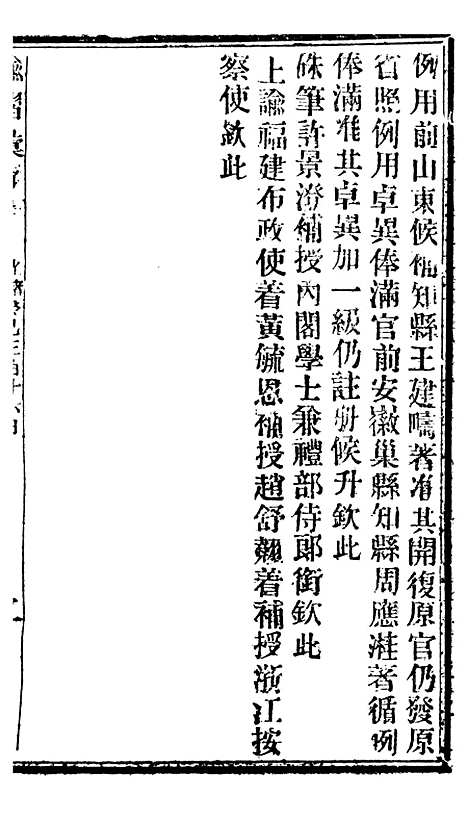 例用前山東候補知縣王建疇著准其開復原官仍發原
省照例用卓異俸滿官前安徽巢縣知縣周應著循例
俸滿准其卓異加一級仍註册候升欽此
硃筆許景澄補授內閣學士兼禮部侍郎銜欽此
上諭福建布政使着黃毓恩補授趙舒翹着補授浙江按
察使欽此